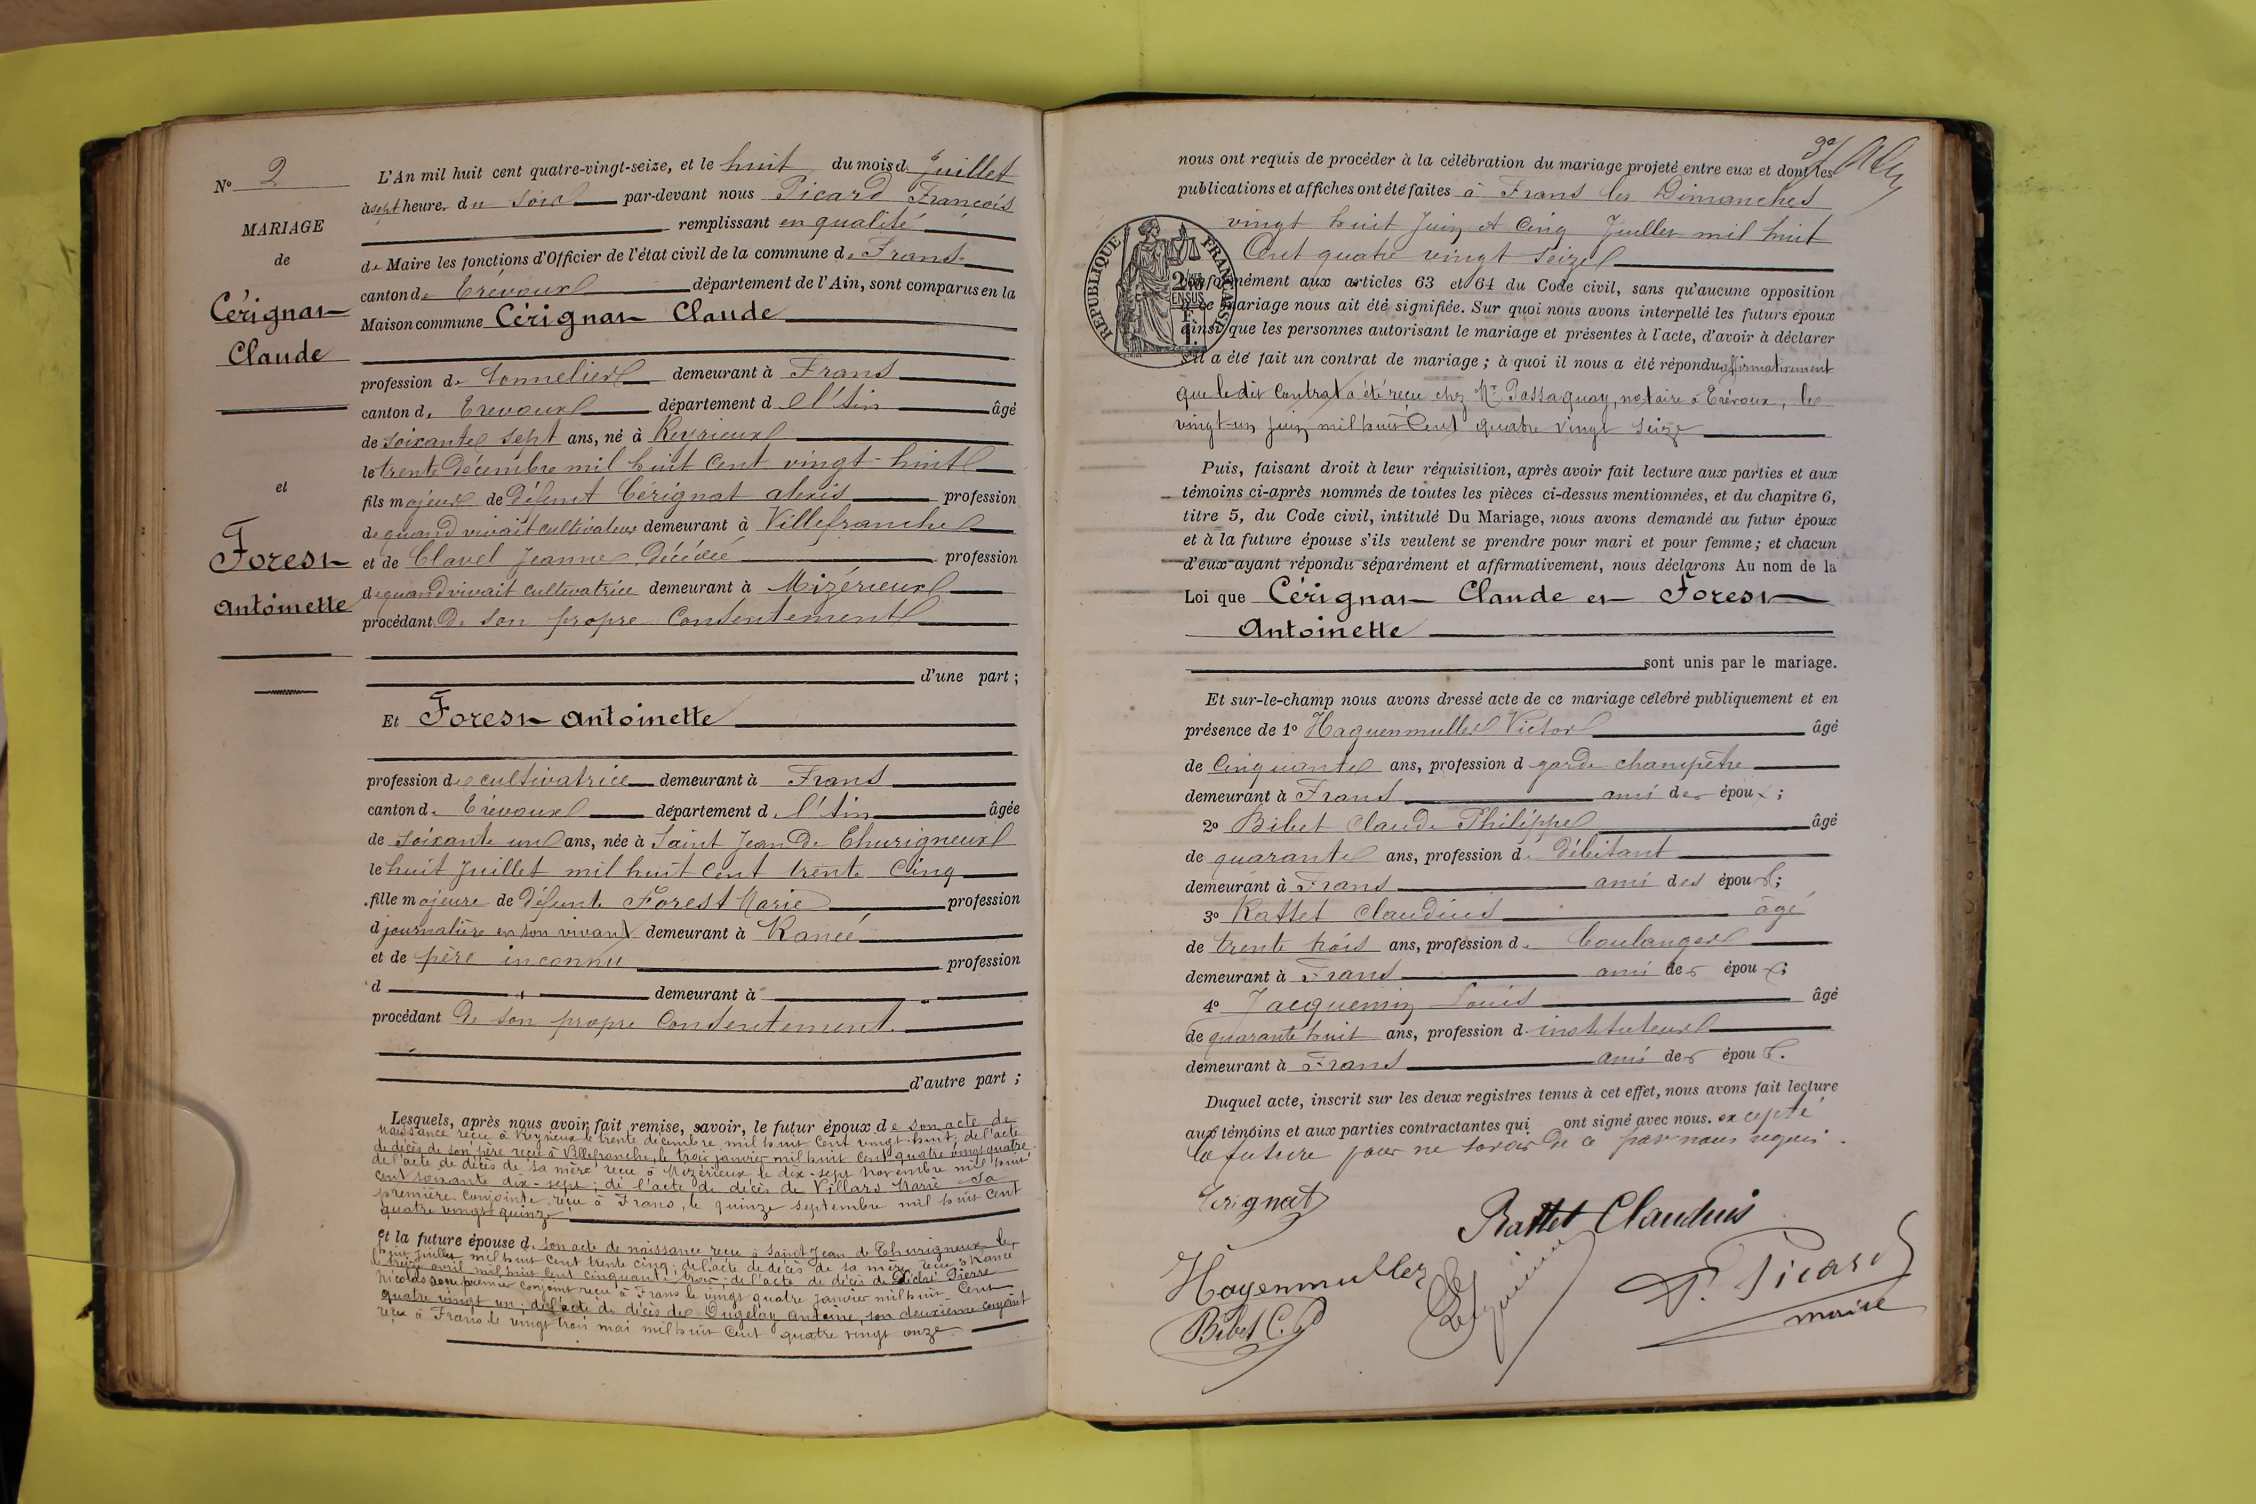 N° 2
MARIAGE
de
Cérignat
Claude
et
Forest
Antoinette
L'An mil huit cent quatre-vingt-seize, et le huit du mois de Juillet
à sept heures du soir par-devant nous Picard François
remplissant en qualité
de Maire les fonctions d'Officier de l'état civil de la commune de Frans
canton de Trévoux département de l'Ain, sont comparus en la
Maison commune Cérignat Claude
profession de tonnelier demeurant à Frans
canton de Trévoux département de l'Ain âgé
de soixante sept ans, né à Reyrieux
le trente Décembre mil huit cent vingt-huit
fils majeur de défunt Cérignat alexis profession
de quand vivait cultivateur demeurant à Villefranche
et de Clavel Jeanne Décédée profession
de quand vivait cultivatrice demeurant à Mizérieux
procédant De son propre consentement
d'une part ;
Et Forest Antoinette
profession de cultivatrice demeurant à Frans
canton de Trévoux département de l'Ain âgée
de soixante un ans, née à Saint Jean De Thurigneux
le huit Juillet mil huit cent trente cinq
fille majeure de défunte Forest Marie profession
d journalière en son vivant demeurant à Rancé
et de père inconnu profession
d demeurant à
procédant De son propre Consentement.
d'autre part ;
Lesquels, après nous avoir fait remise, savoir, le futur époux de son acte de
naissance reçu à Reyrieux le trente décembre mil huit cent vingt-huit; de l'acte
de décès de son père reçu à Villefranche, le trois janvier mil huit cent quatre vingt quatre
de l'acte de décès de sa mère reçu à Mizérieux le dix-sept novembre mil huit
cent soixante dix-sept; de l'acte de décès de Villars Marie sa
première conjointe, reçu à Frans, le quinze septembre mil huit cent
quatre vingt quinze
et la future épouse d. son acte de naissance reçu à Saint Jean de Thurigneux le
huit Juillet mil huit cent trente cinq; de l'acte de décès de sa mère reçu à Rancé
le treize avril mil huit cent cinquante trois; de l'acte de décès de Pierre
Nicolas son premier conjoint reçu à Frans le vingt quatre janvier mil huit cent
quatre vingt un; de l'acte de décès de Dugelay Antoine, son deuxième conjoint
reçu à Frans le vingt trois mai mil huit cent quatre vingt onze
nous ont requis de procéder à la célébration du mariage projeté entre eux et dont les
publications et affiches ont été faites à Frans les Dimanches
vingt huit Juin et Cinq Juillet mil huit
Cent quatre vingt seize
conformément aux articles 63 et 64 du Code civil, sans qu'aucune opposition
à ce mariage nous ait été signifiée. Sur quoi nous avons interpellé les futurs époux
ainsi que les personnes autorisant le mariage et présentes à l'acte, d'avoir à déclarer
s'il a été fait un contrat de mariage ; à quoi il nous a été répondu affirmativement
que le dit contrat a été reçu chez Mr Passaquay, notaire à Trévoux, le
vingt-un Juin mil huit Cent quatre vingt seize
RÉPUBLIQUE FRANÇAISE
Puis, faisant droit à leur réquisition, après avoir fait lecture aux parties et aux
témoins ci-après nommés de toutes les pièces ci-dessus mentionnées, et du chapitre 6,
titre 5, du Code civil, intitulé Du Mariage, nous avons demandé au futur époux
et à la future épouse s'ils veulent se prendre pour mari et pour femme ; et chacun
d'eux ayant répondu séparément et affirmativement, nous déclarons Au nom de la
Loi que Cérignat Claude et Forest
Antoinette
sont unis par le mariage.
Et sur-le-champ nous avons dressé acte de ce mariage célébré publiquement et en
présence de 1° Haguenmuller Victor âgé
de Cinquante ans, profession d garde champêtre
demeurant à Frans ami des époux ;
2° Bibet Claude Philippe âgé
de quarante ans, profession de débitant
demeurant à Frans ami des époux ;
3° Rattet Claudius âgé
de trente trois ans, profession de boulanger
demeurant à Frans ami des époux ;
4° Jacquemin Louis âgé
de quarante huit ans, profession d instituteur
demeurant à Frans ami des époux.
Duquel acte, inscrit sur les deux registres tenus à cet effet, nous avons fait lecture
aux témoins et aux parties contractantes qui ont signé avec nous. excepté
la future pour ne savoir De ce par nous requis.
Cérignat
Rattet Claudius
Hagenmuller
Bibet C. P
P. Picard
maire